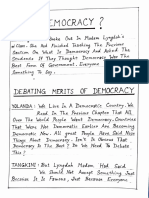 DEMOCRACY?
Breaks Out In Madam Lyngdoh's
Class. She Had Finished Teaching The Previous
Section On What Is Democracy And Asked The
Students If They Thought Democracy Was The
Best Form Of Government. Everyone
Something To Say.
DEBATING MERITS OF DEMOCRACY
YOLANDA: We Live In A Democratic Country. We
Read In The Previous Chapter That All
Over The World People Want Democracy. Countries
That Were Not Democratic Earlier Are Becoming
Democratic Now. All Great People Have Said Nice
Things About Democracy. Isn't It Obvious That
Democracy Is The Best? Do We Need To Debate
This?
TANGKINI: But Lyngdoh Madam Had Said
We Should Not Accept Something Just
Because It Is Famous, Just Because Everyone